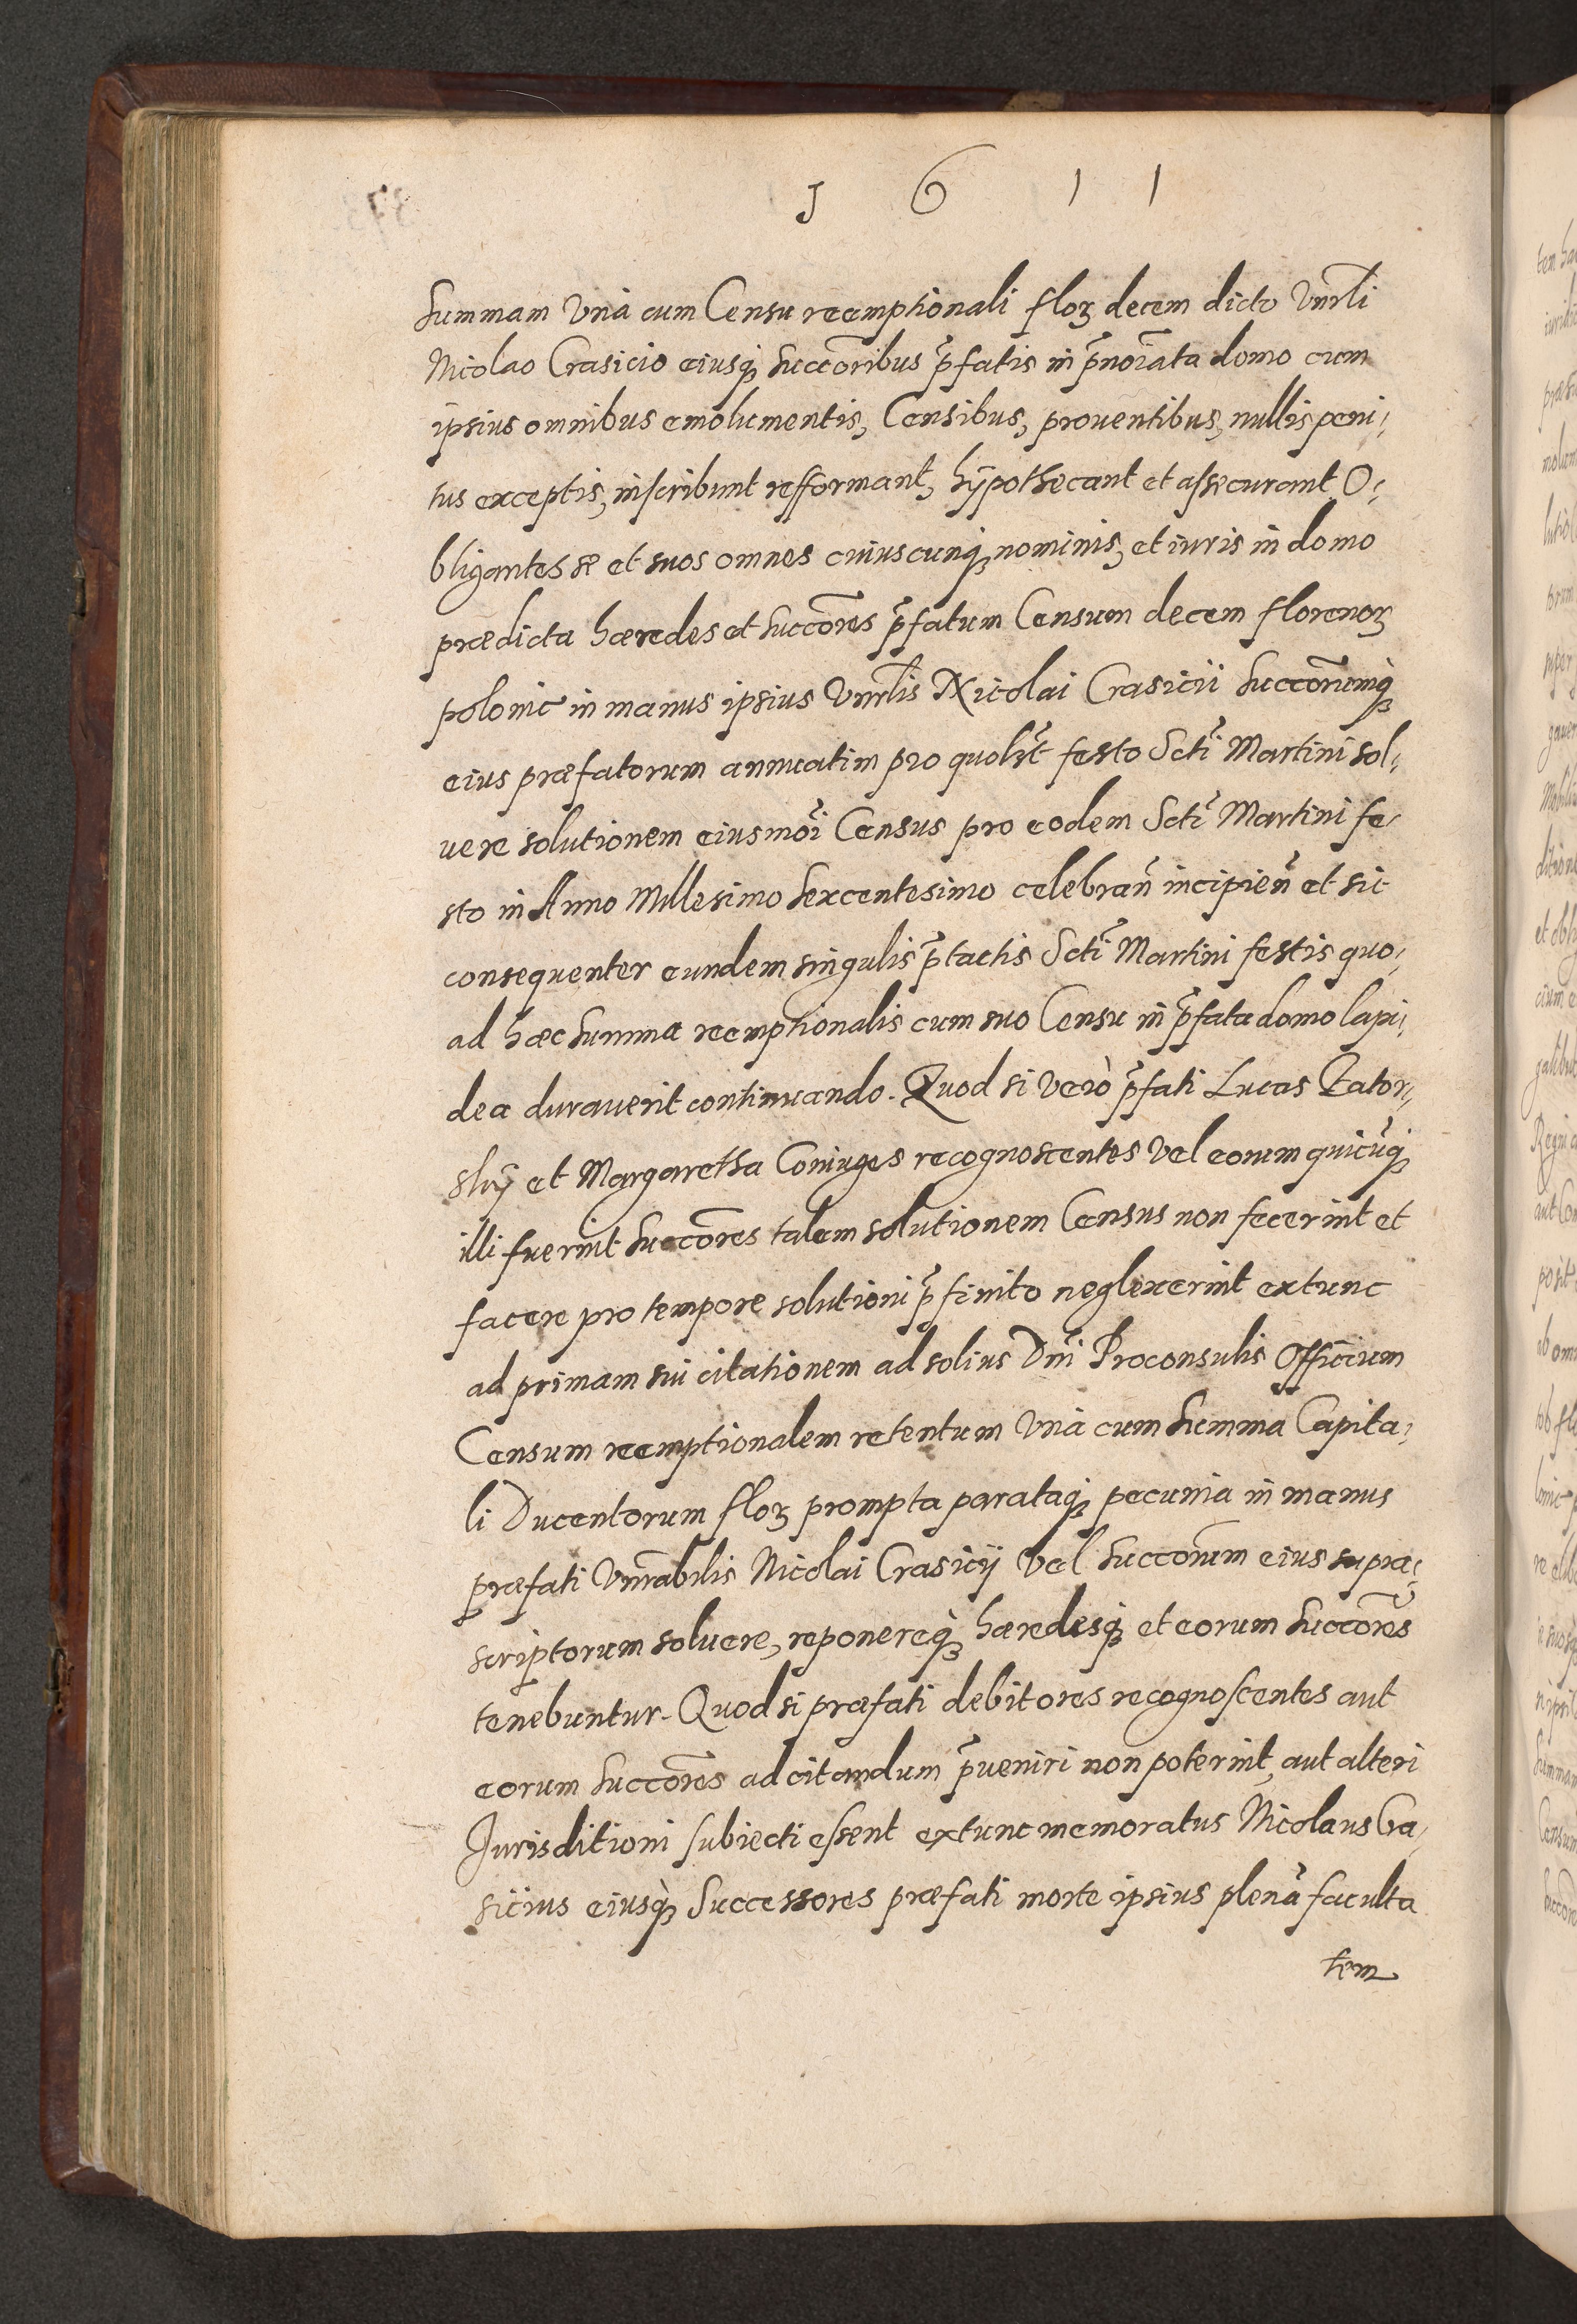 1 6 1 1
Summam Vnà cum Censu reemptionali floꝝ decem dicto Vnrli
Nicolao Crasicio eiusqꝫ Succoribus p̃fatis in p̃noiata domo cum
ipsius omnibus emolumentis, Censibus, prouentibus, nullis peni⸗
tus exceptis, inscribunt refformant, hÿpothecant et assecurant O⸗
bligantes se et suos omnes cuiuscunqꝫ nominis, et iuris in domo
prædicta hæredes et Succores p̃fatum Censum decem florenoꝝ
polonic in manus ipsius Vnrlis Nicolai Crasicii Succorumqꝫ
eius præfatorum annuatim pro quolꝫt festo Scti Martini sol⸗
uere solutionem eiusmoi Census pro eodem Scti Martini fe⸗
sto in Anno Millesimo Sexcentesimo celebrañ incipieñ et sic
consequenter eundem singulis p̃tactis Scti Martini festis quo⸗
ad hæc Summa reemptionalis cum suo Censu in p̃fata domo lapi⸗
dea durauerit continuando. Quod si verò p̃fati Lucas
et Margaretha Coniuges recognoscentes Vel eorum quicũqꝫ
illi fuerint Succores talem solutionem Census non fecerint et
facere pro tempore solutioni p̃finito neglexerint extunc
ad primam sui citationem ad solius Dni Proconsulis Officium
Censum reemptionalem retentum Vnà cum Summa Capita⸗
li Ducentorum floꝝ prompta parataqꝫ pecunia in manus
præfati Vnrabilis Nicolai Crasicÿ Vel Succorum eius supra⸗
scriptorum soluere, reponereqꝫ hæredesqꝫ et eorum Succores
tenebuntur. Quod si præfati debitores recognoscentes aut
eorum Succores ad citandum p̃ueniri non poterint, aut alteri
Jurisditioni subiecti essent extunc memoratus Nicolaus Cra⸗
sicius eiusqꝫ Successores præfati morte ipsius plenã faculta
tem